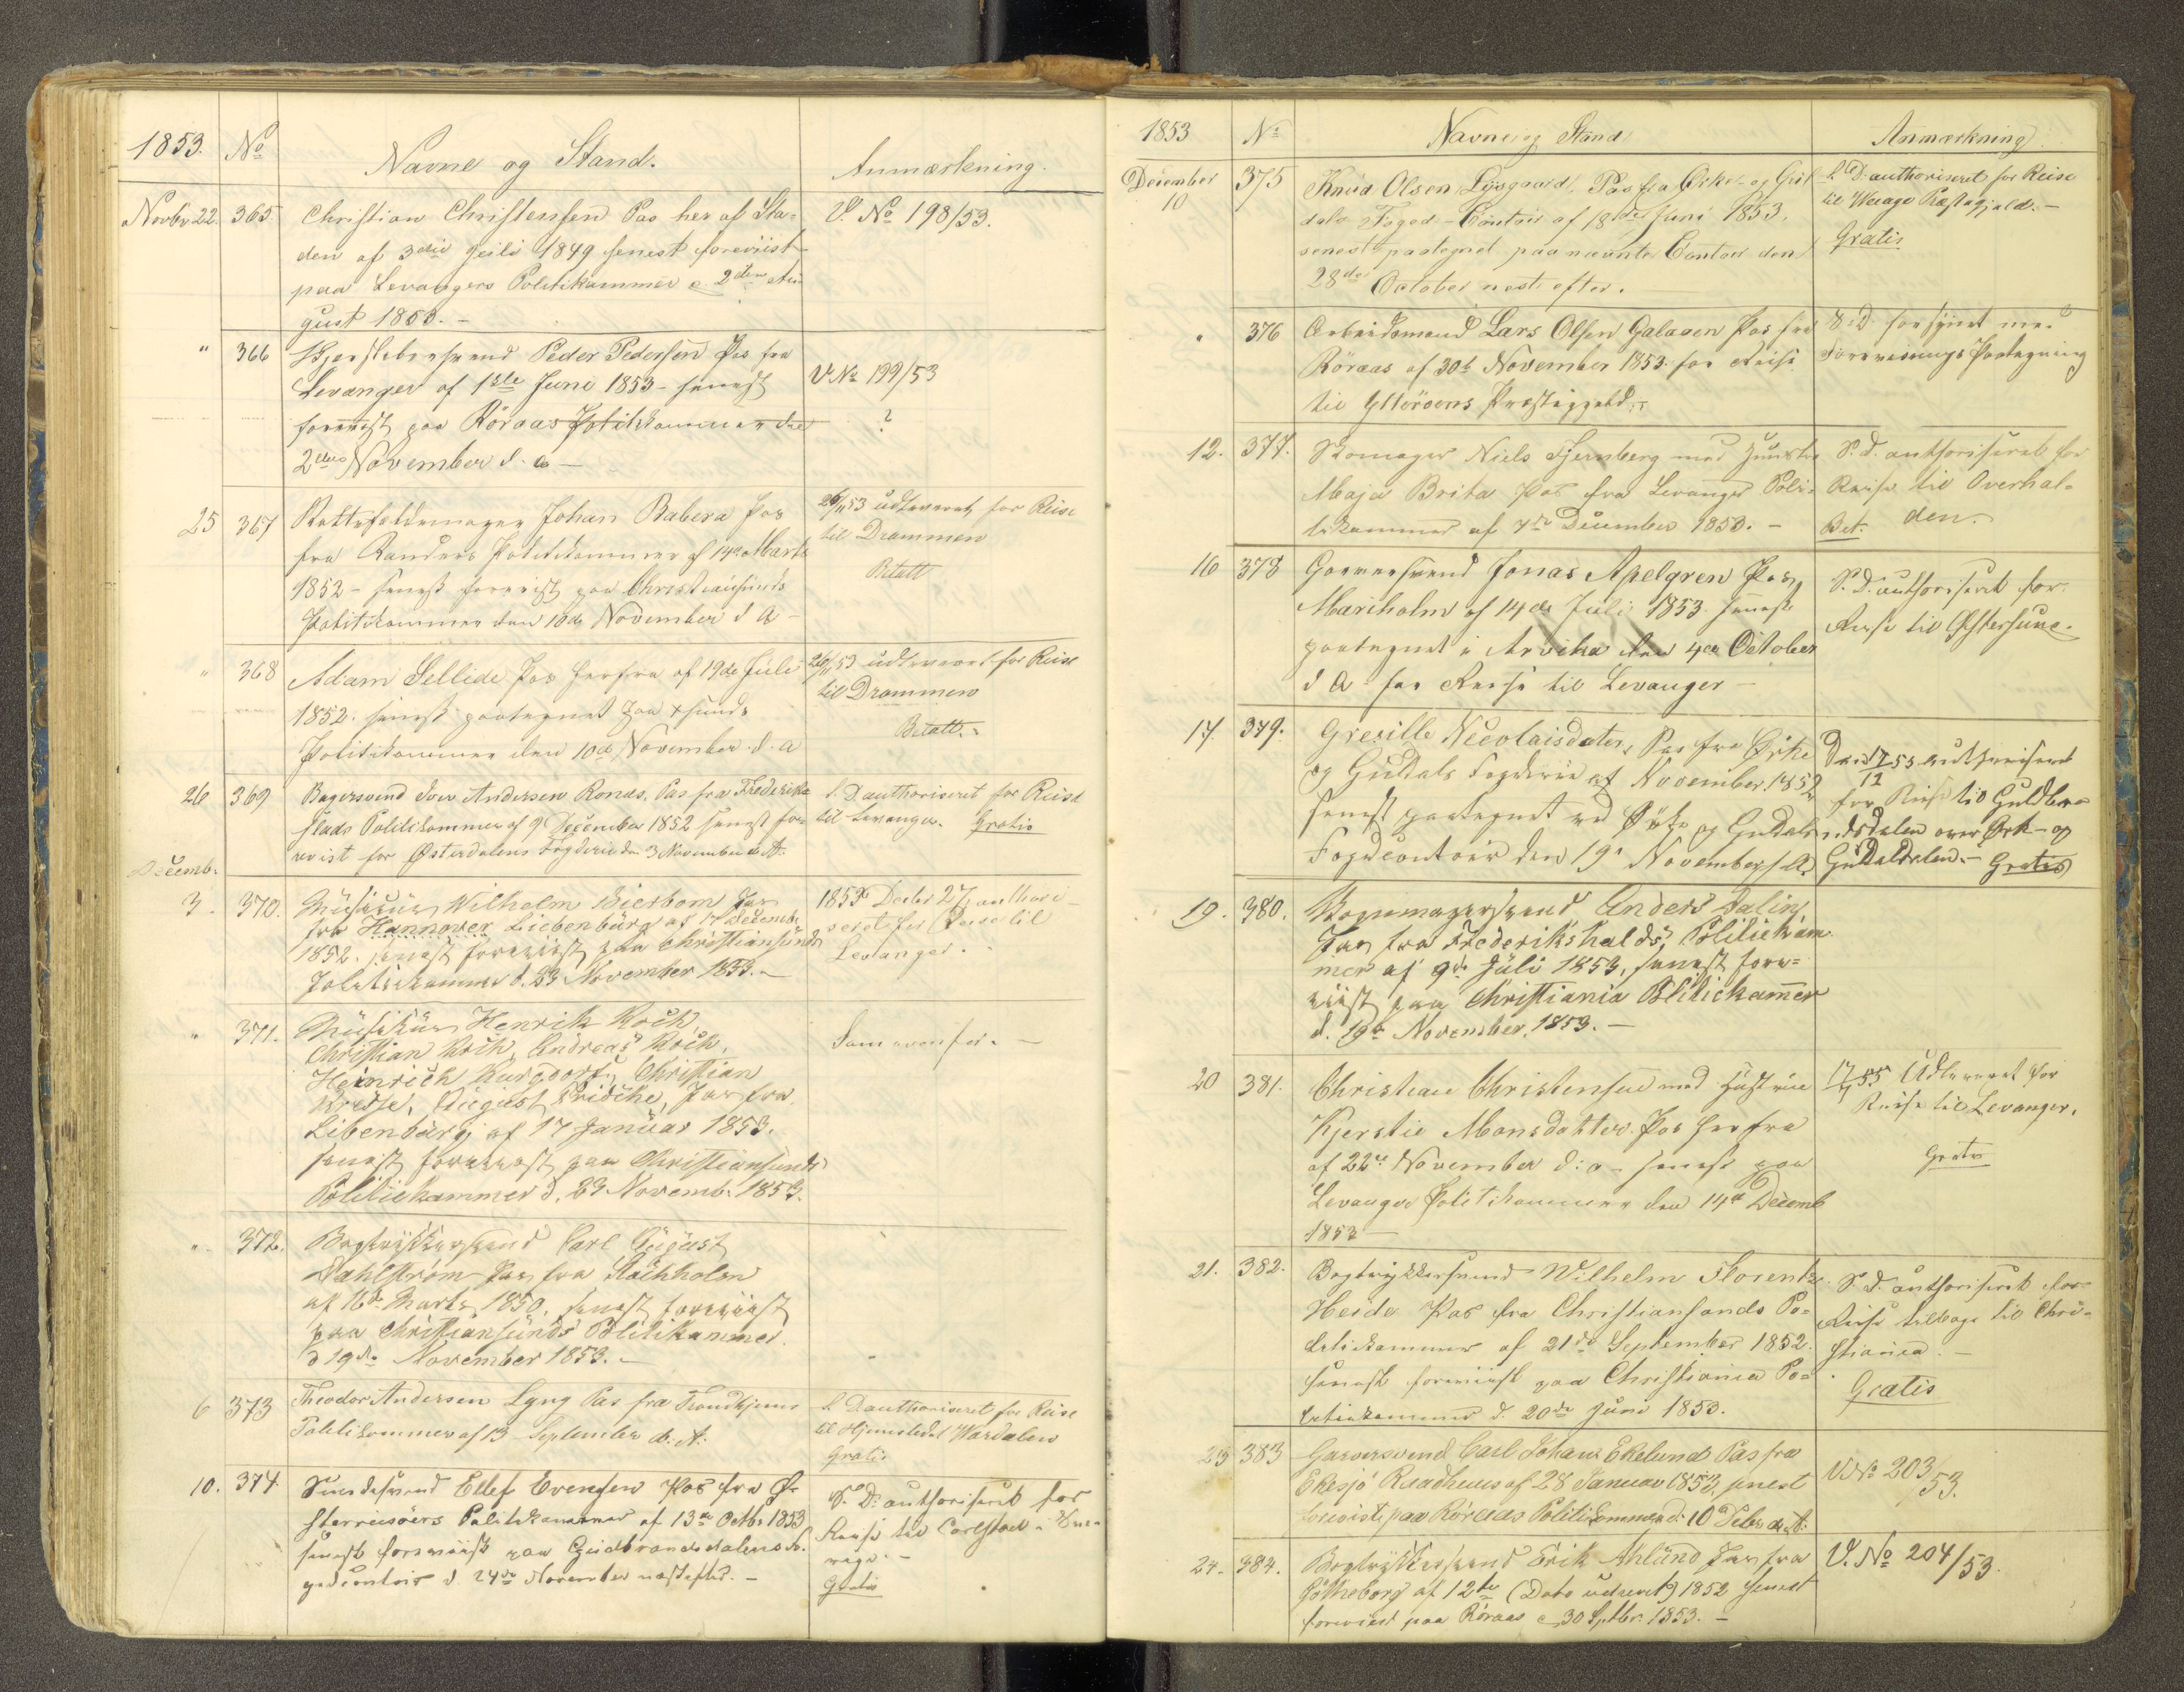 1853. No Navne og Stand. Anmærkning.
Novbr 22. 365. Christian Christensen Pas her af Sta- V. No 198/53.
den af 3die Juli 1849 senest foreviist
paa Levangers Politikammer d. 2den Au
gust 1853. -
" 366 Peder Pedersen Pas fra
Levanger af 1ste Juni 1853 - senest V No 199/53
forevist paa Röraas Politikammer den ?
2den November d. a -
25 367 Rottefældemager Johan Babera Pas 26/11 53 udleveret for Reise
fra Randers Politikammer af 14de Marts til Drammen
1852 - senest forevist paa Christiansunds Betalt
Politikammer den 10de November d A -
" 368 Adam Sellide Pas herfra af 19de Juli 26/11 53 udleveret for Reise
1852. senest paategnet paa Xsunds til Drammen
Politikammer den 10de November d. a Betalt.
26 369 Bagersvend Iver Andersen Ronas, Pas fra Frederiks- S. D authoriseret for Reise
stads Politikammer af 9 December 1852 senest fore- til Levanger. Gratis
vist for Østerdalens Fogderie den 3 November d. A.
Decemb.
3. 370. Musikus Wilhelm Bierbom Pas 1853 Decbr 27 authori-
fra Hannover Liebenburg af 17 Decembr seret for Reise til
1852. senest foreviist paa Christiansunds Levanger.
Politikammer d. 23 November 1853. -
" 371. Musikus Henrik Koch, Som ovenfor. -
Christian Koch, Andreas Koch,
Heinrich Burgdorf, Christian
August Fridche, Pas fra
Libenburg af 17 Januar 1853.
senest foreviist paa Christiansunds
Politiekammer d. 23 Novemb. 1853.
" 372. Bogtrykkersvend Carl August
Dahlstrøm Pas fra Stockholm
af 16de Marts 1850, senest foreviist
paa Christiansunds Politikammer
d 19de November 1853. -
6 373 Theodor Andersen Lyng Pas fra Trondhjems S. D authoriseret for Reise
Politikammer af 13 September d. A. til Hjemstedet Wærdalen
Gratis
10. 374. Ellef Evensen Pas fra Ø- S. D. authoriseret for
sterrisöers Politikammer af 13de Octbr 1853 Reise til Carlstad i
senest foreviist paa Gudbrandsdalens Fo- Gratis
gedcontoir d 24de November næstefter. -
1853 No Navne og Stand Anmærkning
December 10 375 Knud Olsen Lysgaard, Pas fra Orke- og Gul- S. D. authoriseret for Reise
dals Foged-Contoir af 18de Juni 1853. til Præstegjeld. -
senest paategnet paa nævnte Contoir den Gratis
28de October næst efter.
" 376 Arbeidsmand Lars Olsen Galaaen Pas fra S. D. forsynet med
Röraas af 30te November 1853 for Reise Forevisnings Paategning
til Ytteröens Præstegjeld. -
12. 377. Skomager Niels Fjernberg med Hunstru S. D. authoriseret for
Maja Brita Pas fra Levanger Poli- Reise til Overhal-
tikammer af 7de December 1853. - den. Bet.
16 378 Garversvend Jonas Apelgren Pas S. D. authoriseret for
Mariholm af 14de Juli 1853 senest Reise til Østersund.
paategnet i Arvika den 4de October
d A for Reise til Levanger -
17. 379. Nicolaisdatter, Pas fra Orke Den 17/12 53 authoriseret
og Guldals Fogderie af November 1852 for Reise til Guldbran-
senest paategnet ved Orke og Guldals dsdalen over Ork- og
Fogedcontoir den 19. November d. A. Guldaldalen. - Gratis
19. 380. Anders Dalin,
Pas fra Frederikshalds Politiekam
mer af 9de Juli 1853, senest fore-
viist paa Christiania Politiekammer
d. 19de November, 1853. -
20 381. Christian Christensen med Hustrue 17/4 55 Udleveret for
Kjerstie Monsdatter Pas herfra Reise til Levanger.
af 22de November d: a - senest paa Gratis
Levanger Politikammer den 14de Decemb
1853
21. 382. Bogtrykkersvend Wilhelm Florentz S. d. authoriseret for
Heide Pas fra Christiansands Po- Reise tilbage til Chri-
litikammer af 21de September 1852. stiania. -
senest foreviist paa Christiania Po- Gratis
litiekammer d. 20de Juni 1853.
23 383 Garversvend Carl Johan Ekelund Pas fra V No 203/53.
Eksjö Raadhuus af 28 Januar 1853, senest
foreviist paa Röraas Politikammer d. 10de Decbr d. A.
24. 384. Bogtrykkersvend Erik Ahlund Pas fra V. No 204/53.
Götheborg af 12te (Dato udrevet) 1852 senest
foreviist paa Röraas d. 30 Septbr. 1853. -